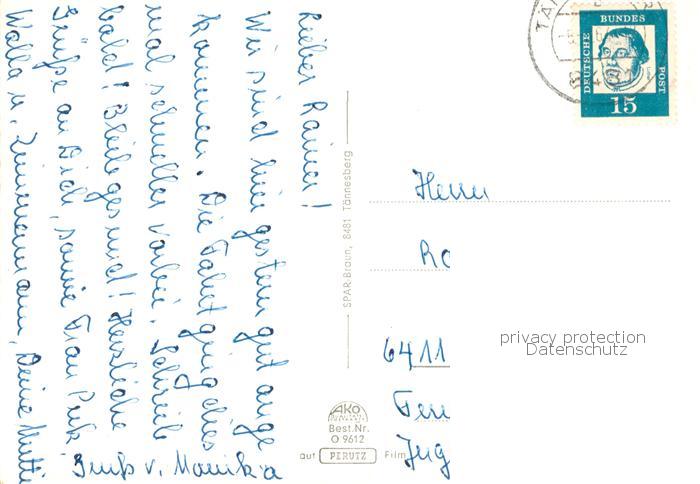 Lieber Rainer!
Wir sind hier gestern gut ange
kommen. Die Fahrt ging dies
mal schneller vorbei. Schreib
bald! Bleib gesund! Herzliche
Grüße an Dich, sowie Frau Puk
Walla u. Zimmermann, Deine Mutti
Gruß v. Monika
SPAR-Braun, 8481 Tännesberg
AKO
Best.Nr.
O 9612
auf PERUTZ Film
DEUTSCHE
BUNDES
POST
15
TÄN
Herrn
Ra
6411
privacy protection
Datenschutz
Jug